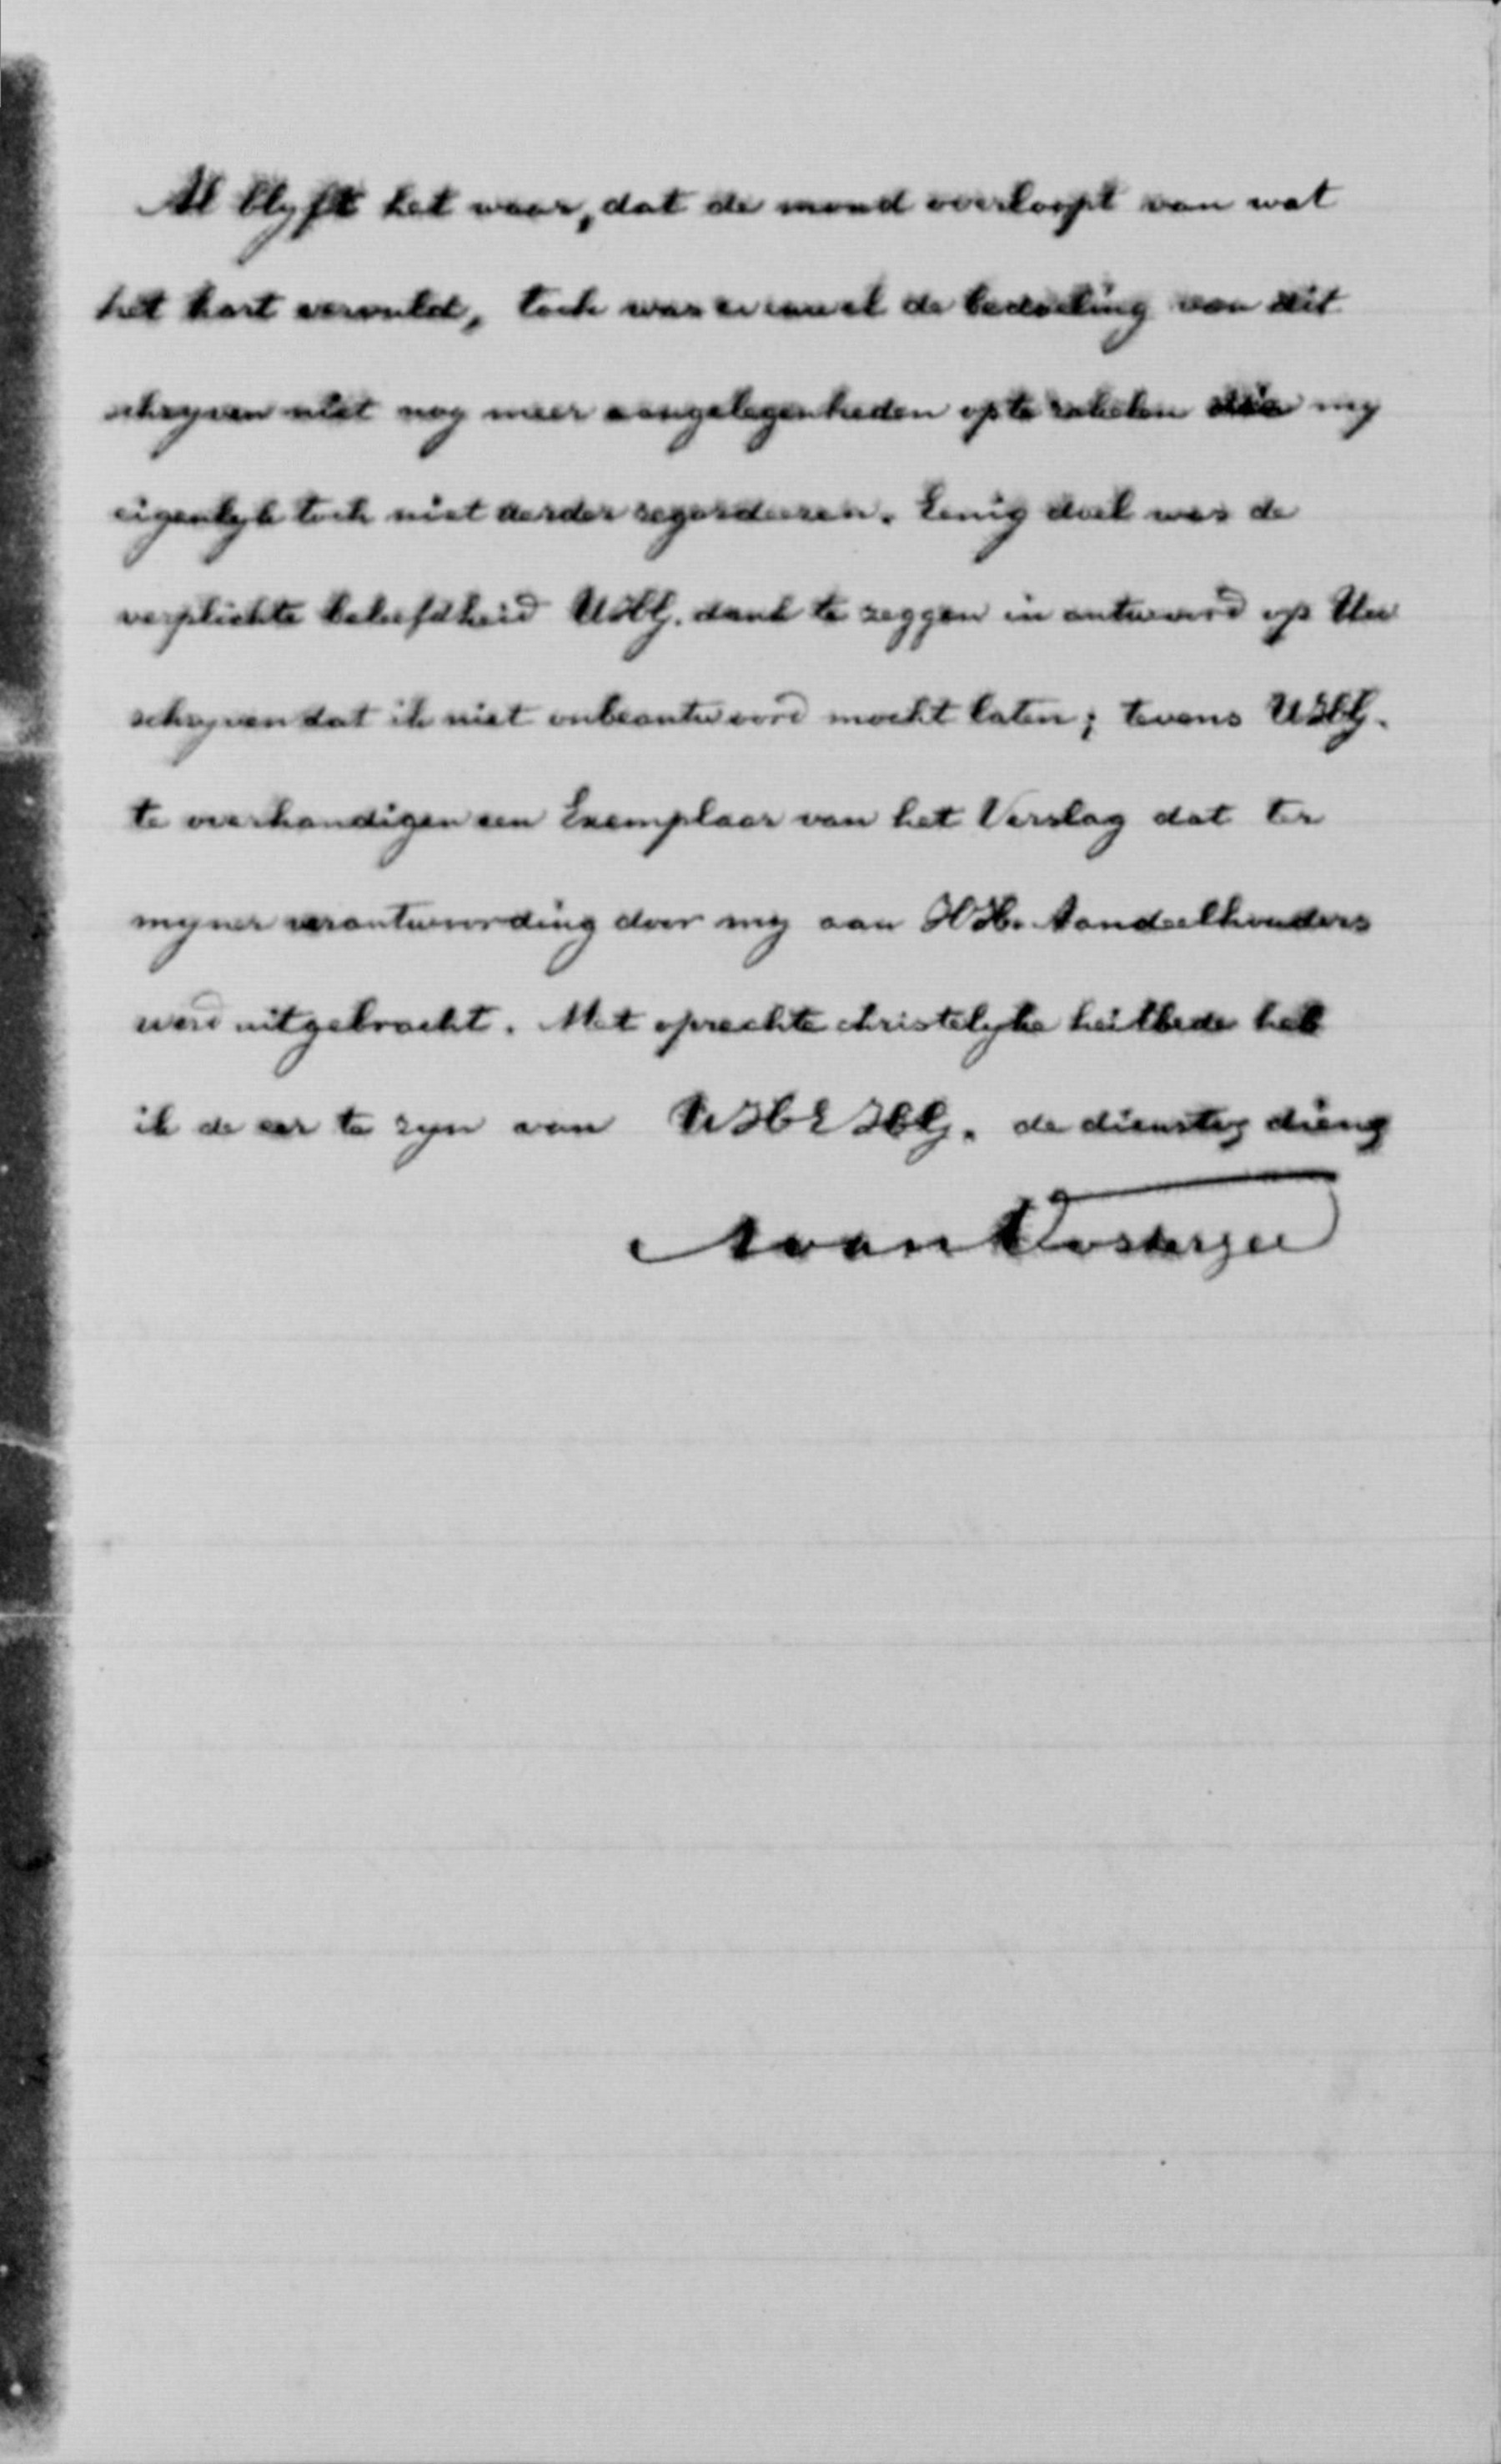 Al blyft het waar, dat de mond overloopt van wat
het hart vervuld, toch was evenwel de bedoeling van dit
schryven niet nog meer aangelegenheden op te rakelen die my
eigenlyk toch niet verder regardeeren. Eenig doel was de
verplichte beleefdheid UHG. dank te zeggen in antwoord op Uw
schryven dat ik niet onbeantwoord mocht laten; tevens UHG.
te overhandigen een Exemplaar van het Verslag dat ter
myner verantwoording door my aan HH. Aandeelhouders
werd uitgebracht. Met oprechte christelyke heilbede heb
ik de eer te zyn van de dienstv dienr